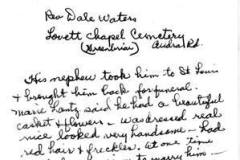 Rev Dale Waters
Lovett Chapel Cemetery
(Greenbrier) Audra Rd.
His nephew took him to St Louis
& brought him back for funeral.
Marie Lantz said he had a beautiful
casket & flowers - was dressed real
nice looked very handsome - had
red hair & freckles. At one time
to marry him -